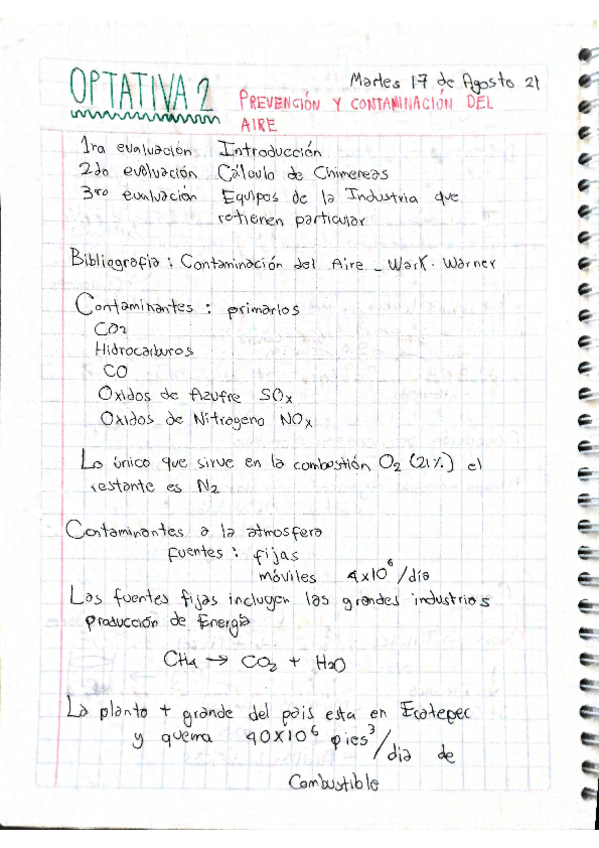 OPTATIVA 2
Martes 17 de Agosto 21
PREVENCIÓN Y CONTAMINACIÓN DEL
AIRE
1ra evaluación Introducción
2do evaluación Cálculo de Chimeneas
3ro evaluación Equipos de la Industria que
retienen particular
Bibliografia : Contaminación del Aire - Wark. Warner
Contaminantes : primarios
CO2
Hidrocarburos
CO
Oxidos de Azufre SOx
Oxidos de Nitrogeno NOx
Lo único que sirve en la combustión O2 (21%) el
restante es N2
Contaminantes a la atmosfera
fuentes : fijas
móviles 4x10⁶/día
Las fuentes fijas incluyen las grandes industrias
producción de Energía
CH4 → CO2 + H2O
La planta + grande del pais esta en Ecatepec
y quema 40X10⁶ pies³/dia de
Combustible